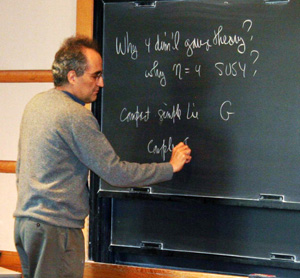 Why 4 dim'l gauge theory?
why n=4 SUSY?
compact simple lie G
couple